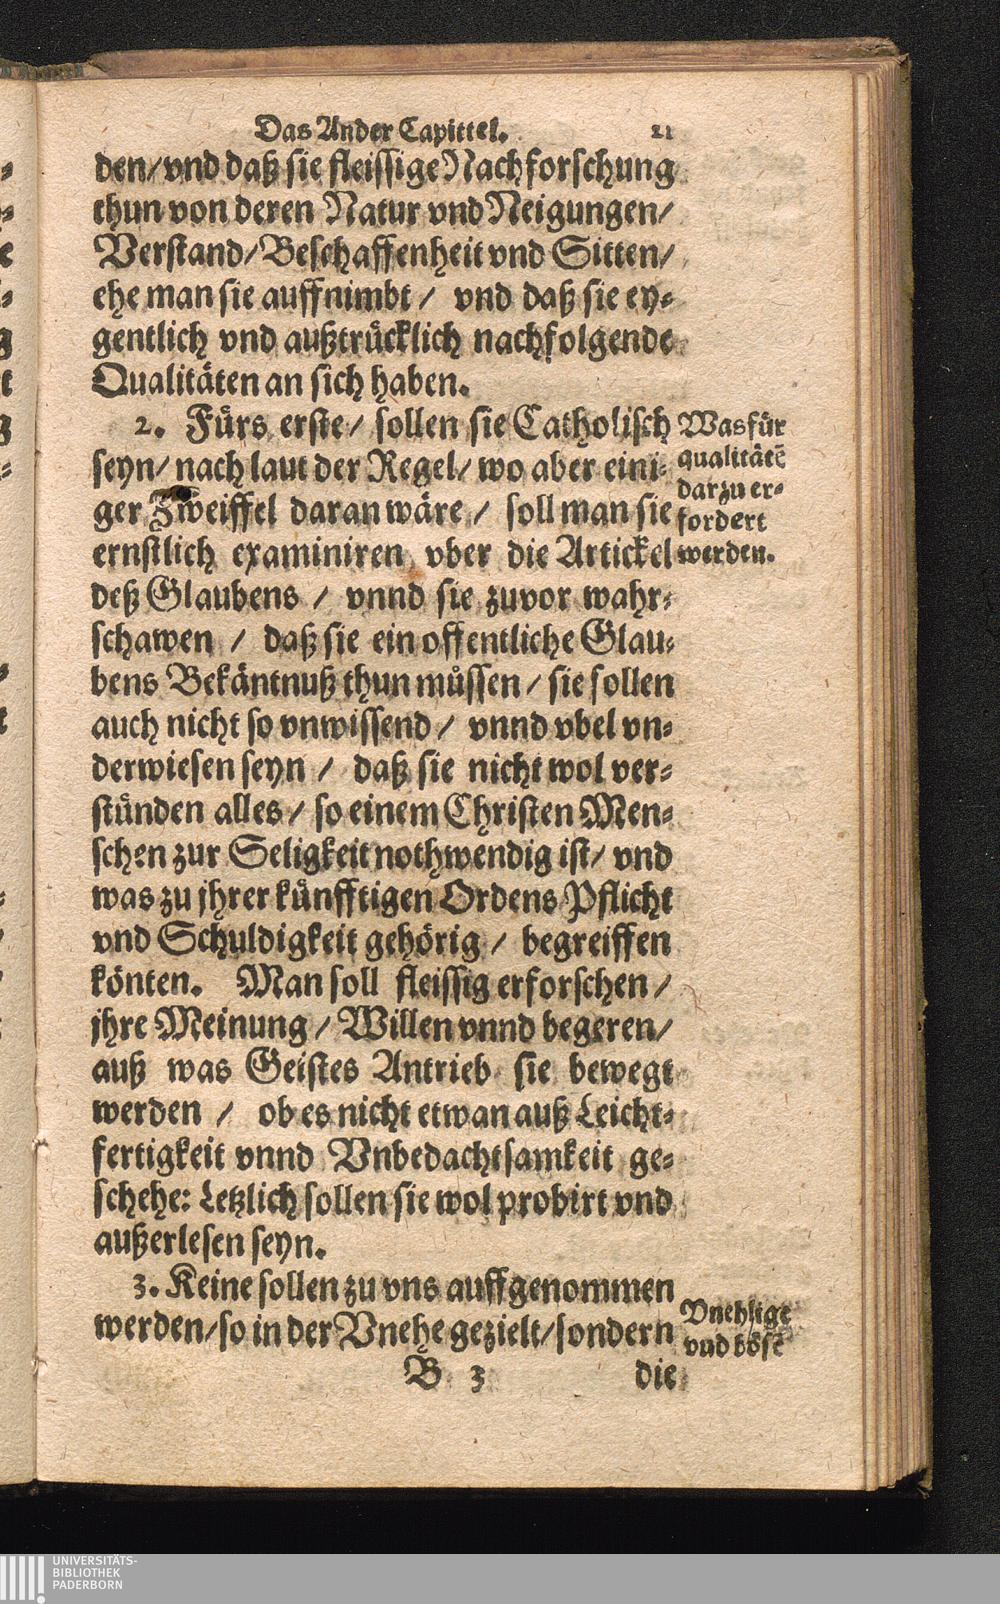 Das Ander Capittel. 21
den/ vnd daß sie fleissige Nachforschung
thun von deren Natur vnd Neigungen/
Verstand/ Beschaffenheit vnd Sitten/
ehe man sie auffnimbt/ vnd daß sie ey⸗
gentlich vnd außtrücklich nachfolgende
Qualitäten an sich haben.
2. Fürs erste/ sollen sie Catholisch
seyn/ nach laut der Regel/ wo aber eini⸗
ger Zweiffel daran wäre/ soll man sie
ernstlich examiniren vber die Artickel
deß Glaubens/ vnnd sie zuvor wahr⸗
schawen/ daß sie ein offentliche Glau⸗
bens Bekäntnuß thun müssen/ sie sollen
auch nicht so vnwissend/ vnnd vbel vn⸗
derwiesen seyn/ daß sie nicht wol ver⸗
stünden alles/ so einem Christen Men⸗
schen zur Seligkeit nothwendig ist/ vnd
was zu jhrer künfftigen Ordens Pflicht
vnd Schuldigkeit gehörig/ begreiffen
könten. Man soll fleissig erforschen/
jhre Meinung/ Willen vnnd begeren/
auß was Geistes Antrieb sie bewegt
werden/ ob es nicht etwan auß Leicht⸗
fertigkeit vnnd Vnbedachtsamkeit ge⸗
schehe: Letzlich sollen sie wol probirt vnd
außerlesen seyn.
3. Keine sollen zu vns auffgenommen
werden/ so in der Vnehe gezielt/ sondern
B 3 die
Was für
qualitätẽ
darzu er⸗
fordert
werden.
Vnehlige
vnd bösẽ
UNIVERSITÄTS-
BIBLIOTHEK
PADERBORN